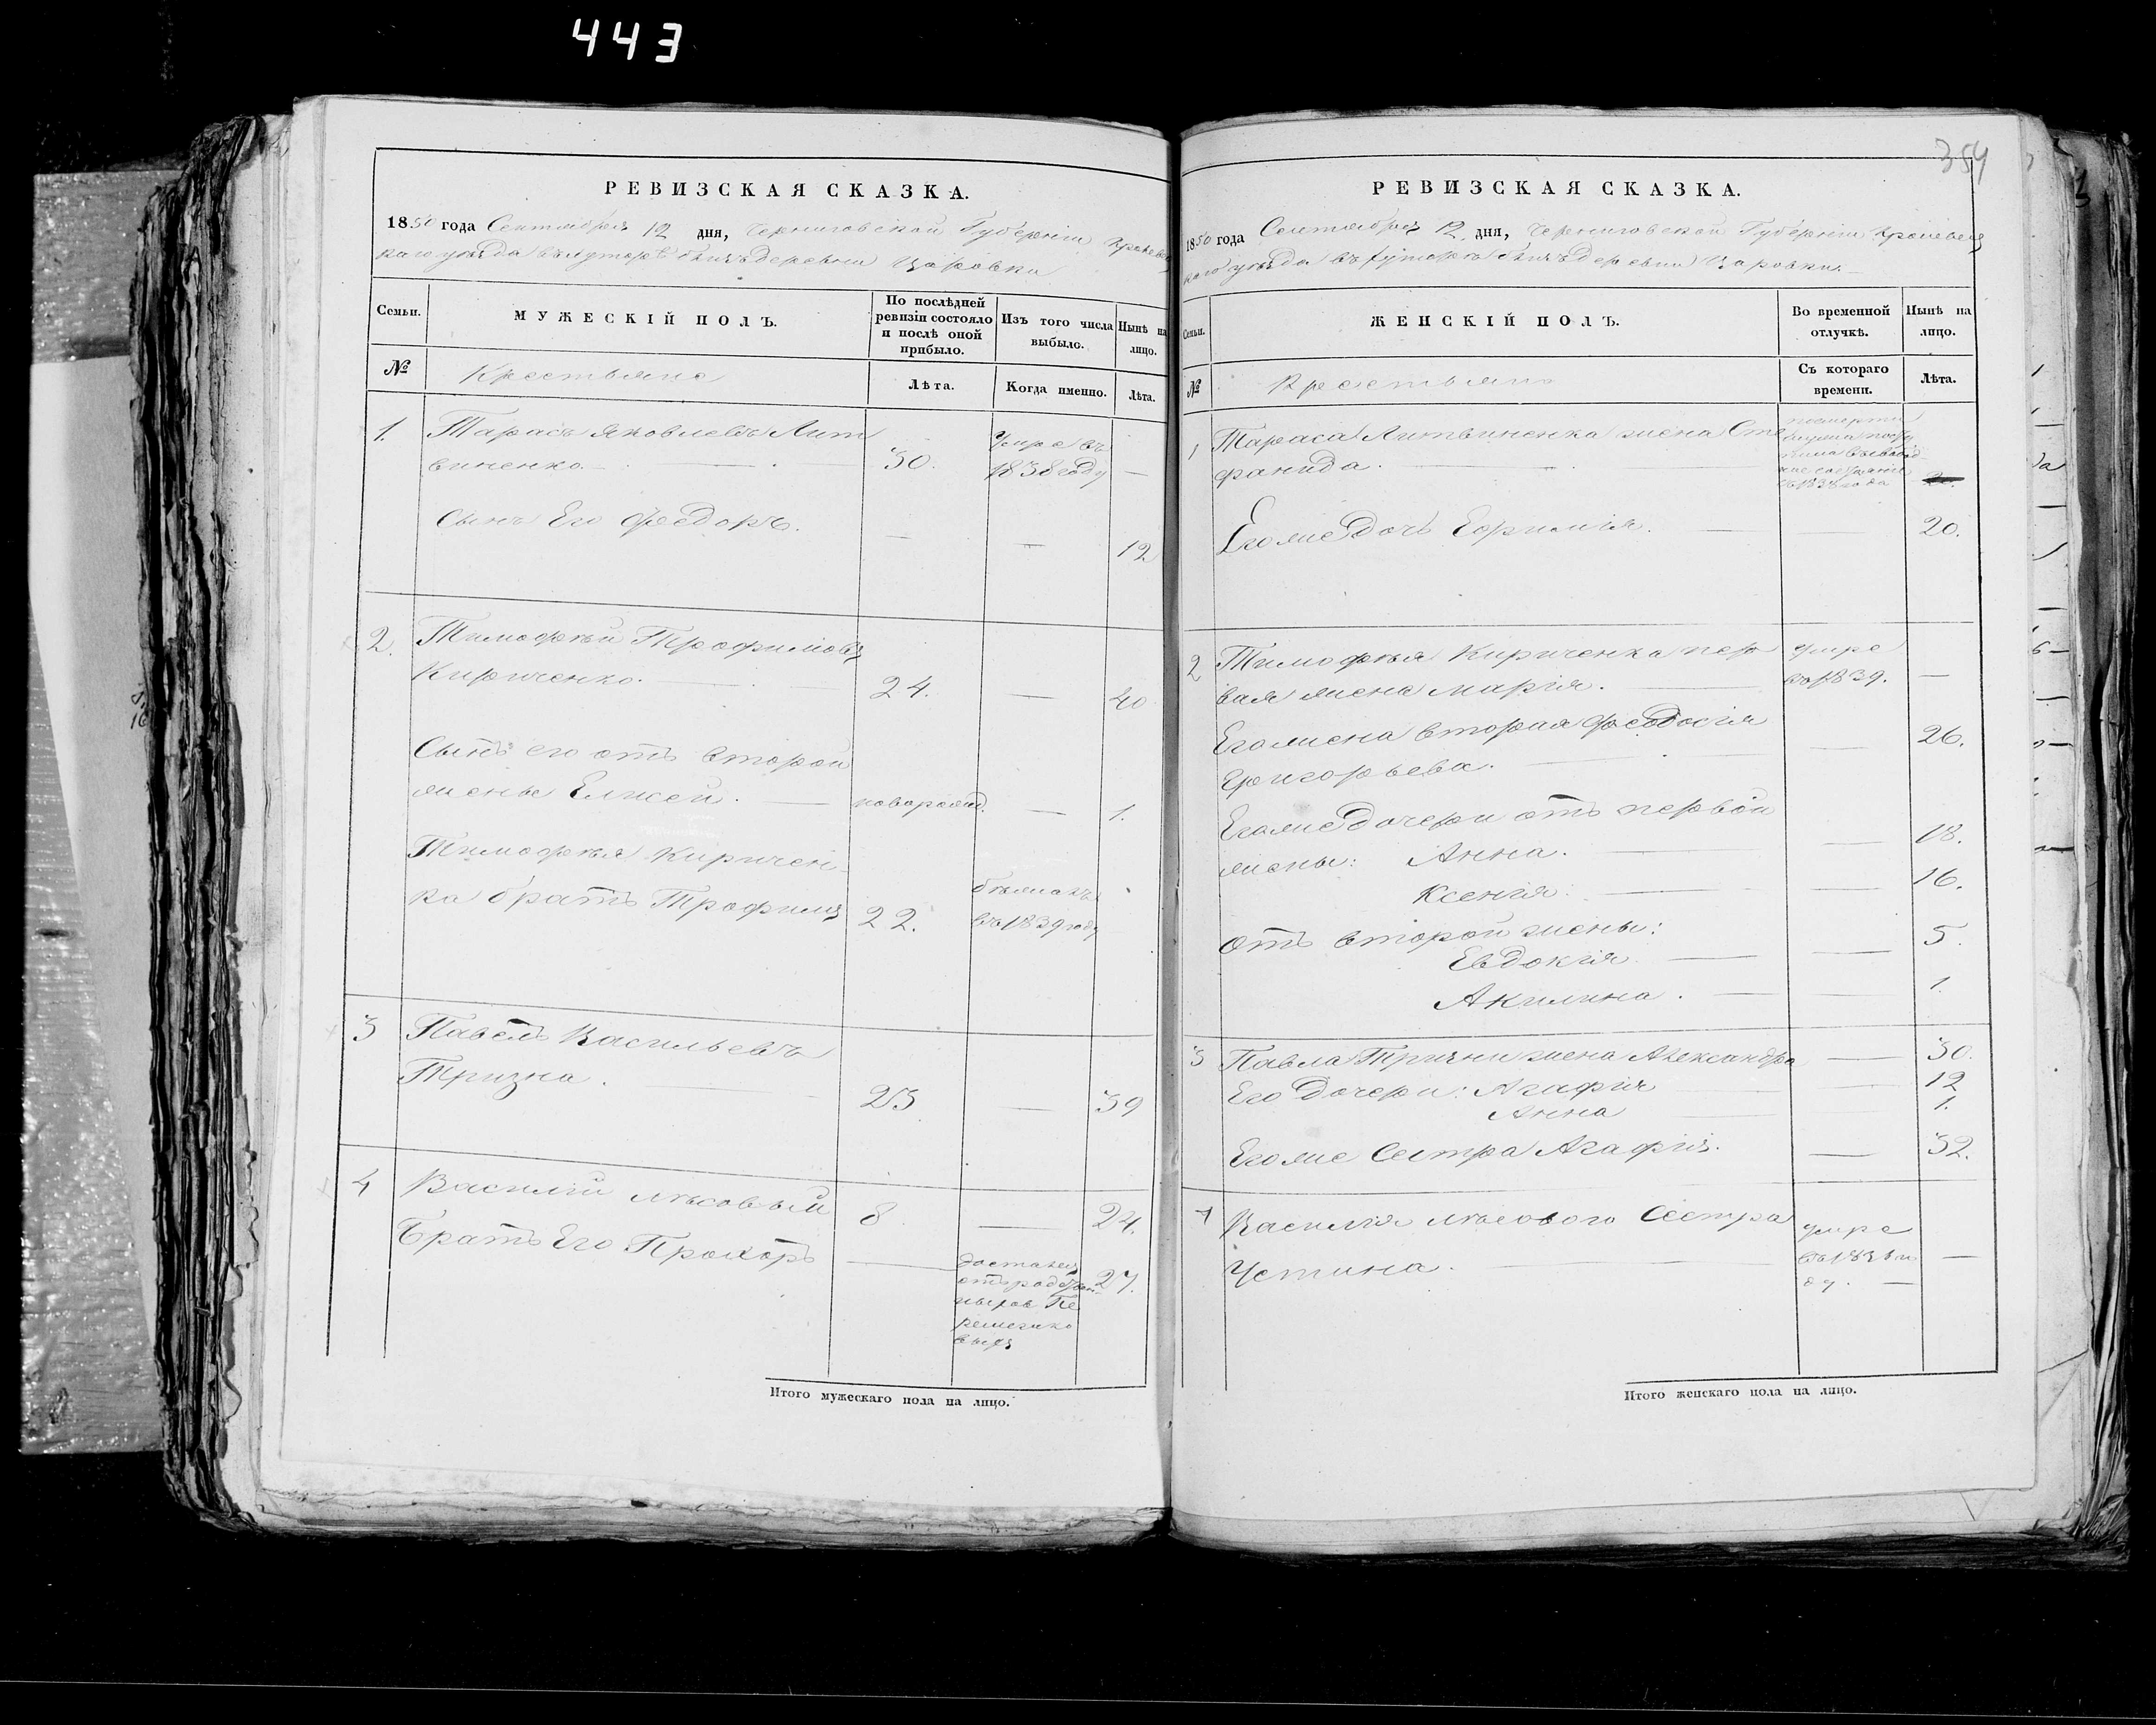 443
РЕВИЗСКАЯ СКАЗКА.
1850 года Сентября 12 дня, Черниговской Губерніи Кролевец
каго уѣзда въ хуторѣ близъ деревни Царовки
Семьи.
МУЖЕСКІЙ ПОЛЪ.
По послѣдней ревизіи состояло и послѣ оной прибыло.
Изъ того числа выбыло.
Нынѣ на лицо.
№
Крестьяне
Лѣта.
Когда именно.
Лѣта.
1. Тарасъ Яковлевъ Лит
виненко. 30. Умре въ 1838 году —
Сынъ Его Федоръ. — — 12
2. Тимофѣй Трофимовъ
Кириченко. 24. — 40
Сынъ его отъ второй
жены Елисей. — новорожд. — 1.
Тимофѣя Киричен
ка братъ Трофимъ 22. бѣжалъ въ 1839 году
3 Павелъ Васильевъ
Тризна. 23 — 39
4 Василій Лѣсовый 8 — 24.
Братъ Его Прохоръ — 27.
достался
отъ
Итого мужескаго пола на лицо.
354
РЕВИЗСКАЯ СКАЗКА.
1850 года Сентября 12 дня, Черниговской Губерніи Кролевец
каго уѣзда въ хуторѣ близъ деревни Царовки.
Семьи.
ЖЕНСКІЙ ПОЛЪ.
Во временной отлучкѣ.
Нынѣ на лицо.
№
Крестьяне
Съ котораго времени.
Лѣта.
1 Тараса Литвиненка жена Сте
фанида.
по смерти
мужа
съ 1838 года
Егоже дочь Ефимія. — — 20.
2 Тимофѣя Кириченка пер
вая жена Марія. — умре въ 1839. —
Его жена вторая Феодосія
Григорьева. — — 26.
Егоже дочери отъ первой
жены: Анна. — — 18.
Ксенія. — — 16.
отъ второй жены:
Евдокія — — 5.
Акилина. — — 1.
3 Павла Тризни жена Александра — 30.
Его дочери: Агафія — 12
Анна 1.
Егоже Сестра Агафія. — 32.
4 Василія Лѣсового Сестра
Устина. — умре —
Итого женскаго пола на лицо.